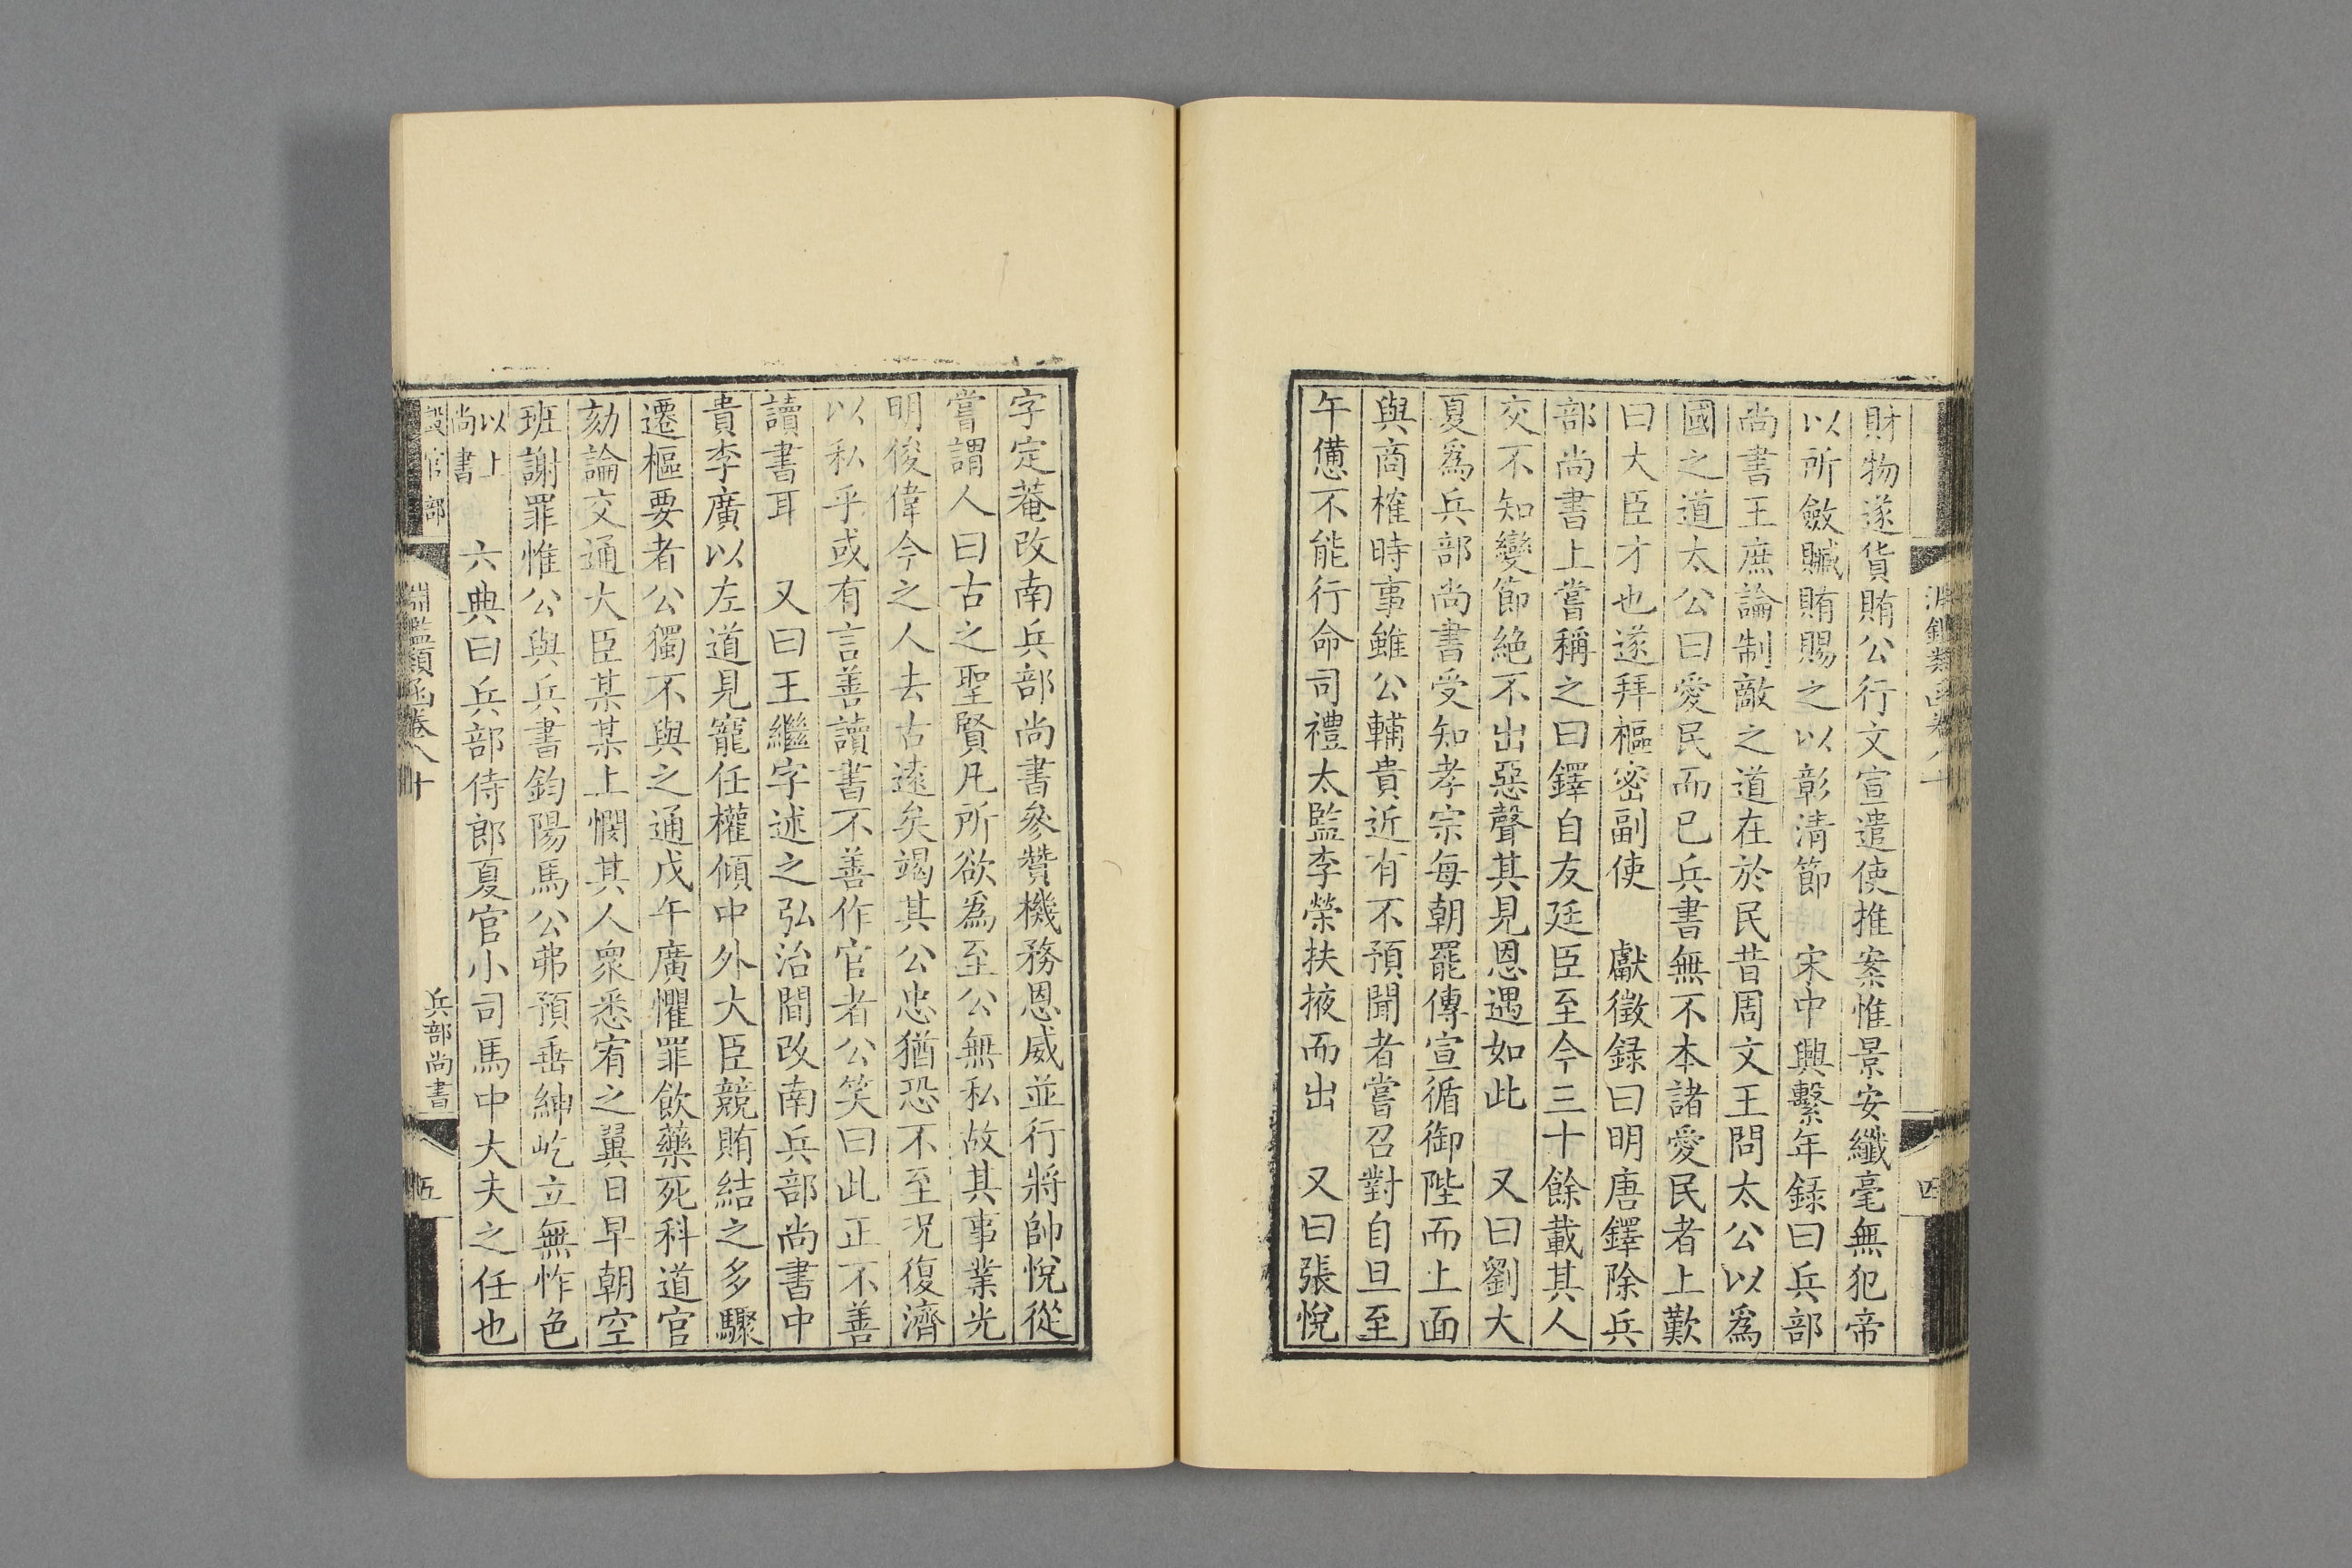 財物遂貨賄公行文宣遣使推案惟景安纖毫無犯帝
以所斂贓賄賜之以彰清節　宋中興繫年錄曰兵部
尚書王庶論制敵之道在於民昔周文王問太公以爲
國之道太公曰愛民而已兵書無不本諸愛民者上歎
曰大臣才也遂拜樞密副使　獻徵録曰明唐鐸除兵
部尚書上嘗稱之曰鐸自友廷臣至今三十餘載其人
交不知變節絶不出惡聲其見恩遇如此　又曰劉大
夏爲兵部尚書受知孝宗每朝罷傳宣循御陛而上面
與商榷時事雖公輔貴近有不預聞者嘗召對自旦至
午憊不能行命司禮太監李榮扶掖而出　又曰張悅
字定菴改南兵部尚書參贊機務恩威並行將帥悅從
嘗謂人曰古之聖賢凡所欲爲至公無私故其事業光
明俊偉今之人去古遠矣竭其公忠猶恐不至况復濟
以私乎或有言善讀書不善作官者公笑曰此正不善
讀書耳　又曰王繼字述之弘治間改南兵部尚書中
貴李廣以左道見寵任權傾中外大臣競賄結之多驟
遷樞要者公獨不與之通戊午廣懼罪飲藥死科道官
劾論交通大臣某某上憫其人衆悉宥之翼日早朝空
班謝罪惟公與兵書鈞陽馬公弗預垂紳屹立無怍色
以上尚書　六典曰兵部侍郎夏官小司馬中大夫之任也
淵鑑類函卷八十
兵部尚書
五